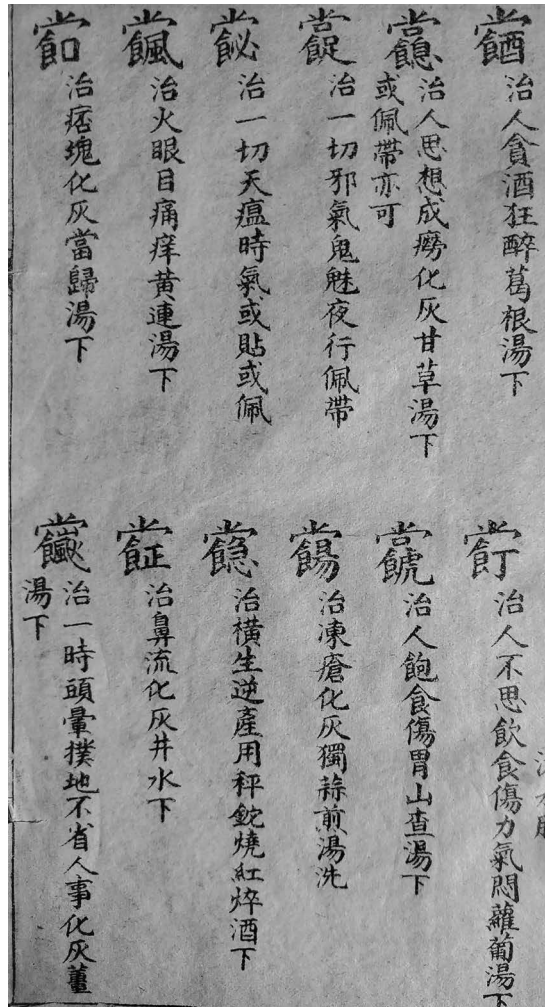 治人貪酒狂醉葛根湯下
治人思想成癆化灰甘草湯下
或佩帶亦可
治一切邪氣鬼魅夜行佩帶
治一切天瘟時氣或貼或佩
治火眼目痛痒黃連湯下
治痞塊化灰當歸湯下
治人不思飲食傷力氣悶蘿蔔湯下
治人飽食傷胃山查湯下
治凍瘡化灰獨蒜煎湯洗
治橫生逆產用秤鉈燒紅焠酒下
治鼻流化灰井水下
治一時頭暈撲地不省人事化灰薑
湯下